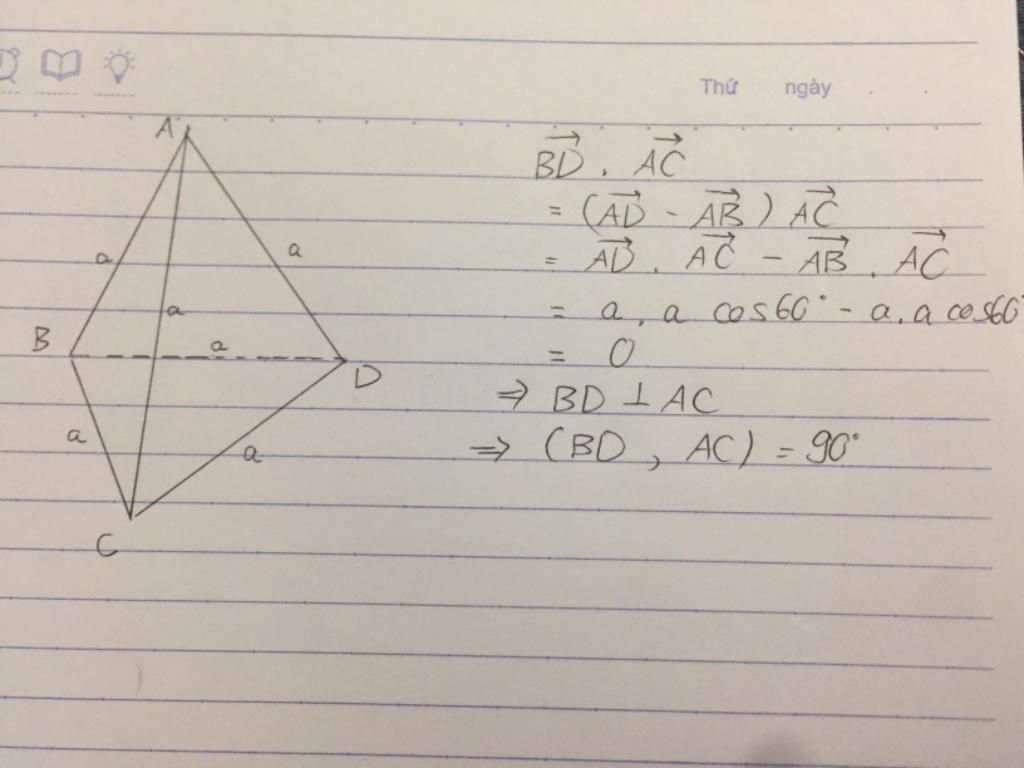 Thứ ngày
A
a
a
a
B
a
D
a
a
C
BD⃗ . AC⃗
= (AD⃗ - AB⃗) AC⃗
= AD⃗ . AC⃗ - AB⃗ . AC⃗
= a . a cos60° - a . a cos60°
= 0
⇒ BD ⊥ AC
⇒ (BD , AC) = 90°